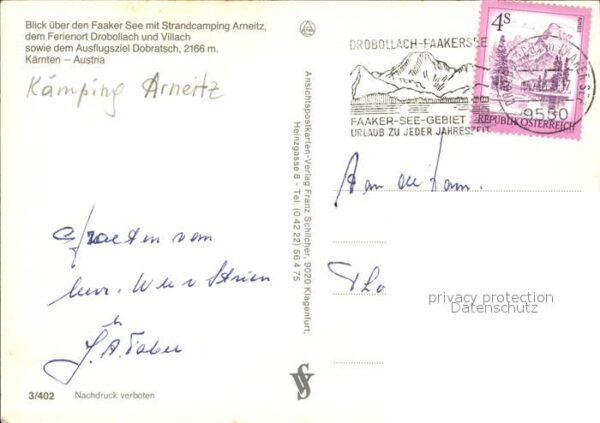 Blick über den Faaker See mit Strandcamping Arneitz,
dem Ferienort Drobollach und Villach
sowie dem Ausflugsziel Dobratsch, 2166 m.
Kärnten – Austria
Kämping Arneitz
Groeten van
3/402 Nachdruck verboten
Ansichtspostkarten-Verlag Franz Schilcher, 9020 Klagenfurt,
Heinzgasse 8 - Tel. (0 42 22) 56 4 75
DROBOLLACH-FAAKERSEE
FAAKER-SEE-GEBIET
URLAUB ZU JEDER JAHRESZEIT
4s
ALMSEE
REPUBLIK ÖSTERREICH
9580
Aan de Fam.
privacy protection
Datenschutz